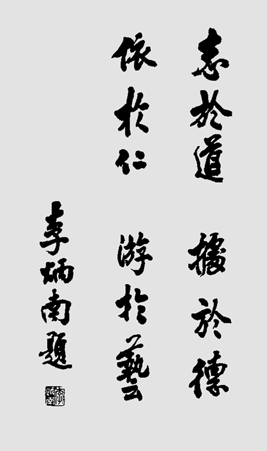 志於道　據於德
依於仁　游於藝
李炳南題